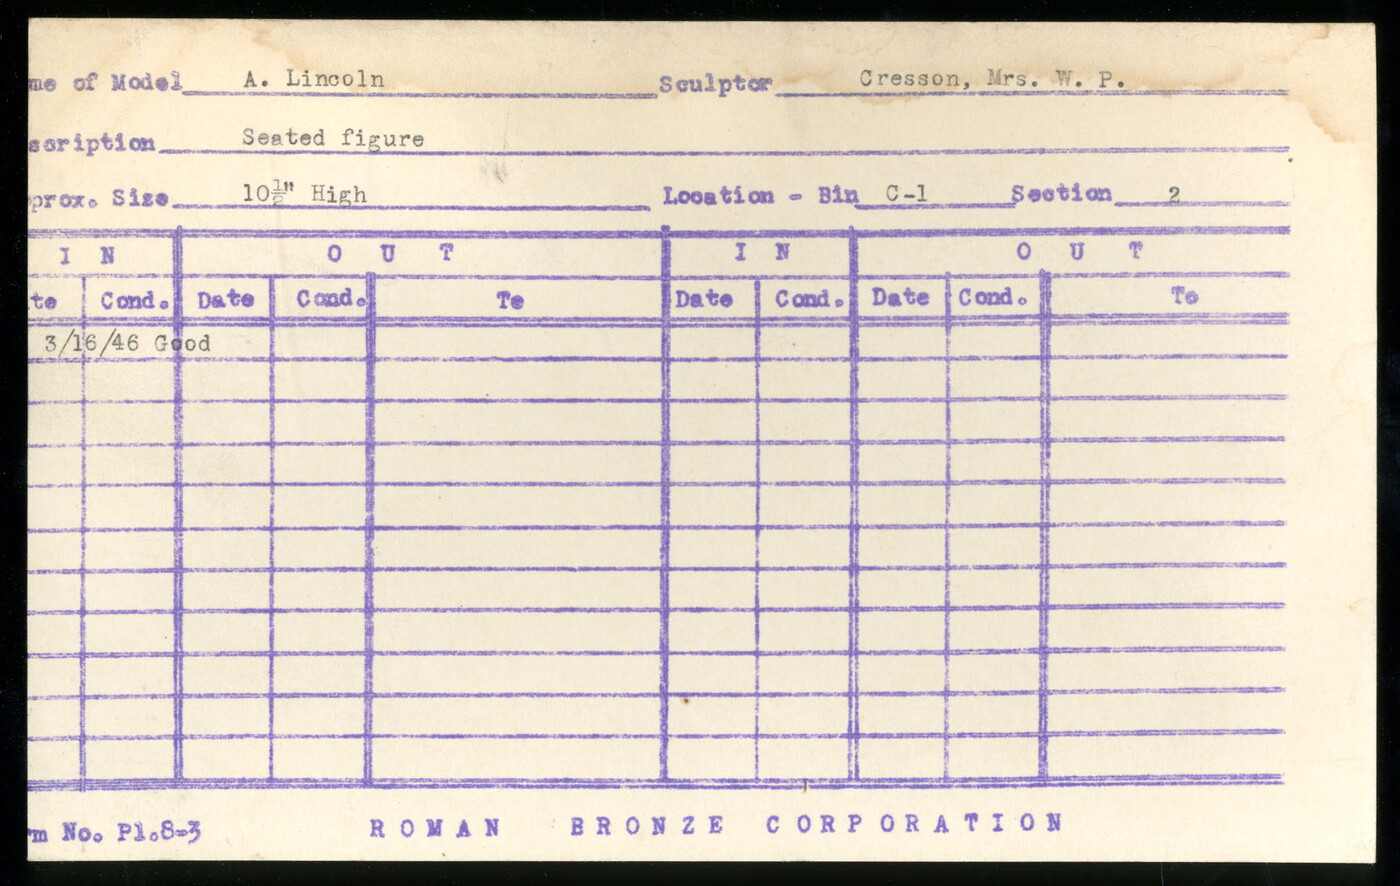 me of Model A. Lincoln Sculptor Cresson, Mrs. W. P.
scription Seated figure
prox. Size 10½" High Location - Bin C-1 Section 2
I N O U T I N O U T
te Cond. Date Cond. To Date Cond. Date Cond. To
3/16/46 Good
m No. Pl.8-3 ROMAN BRONZE CORPORATION